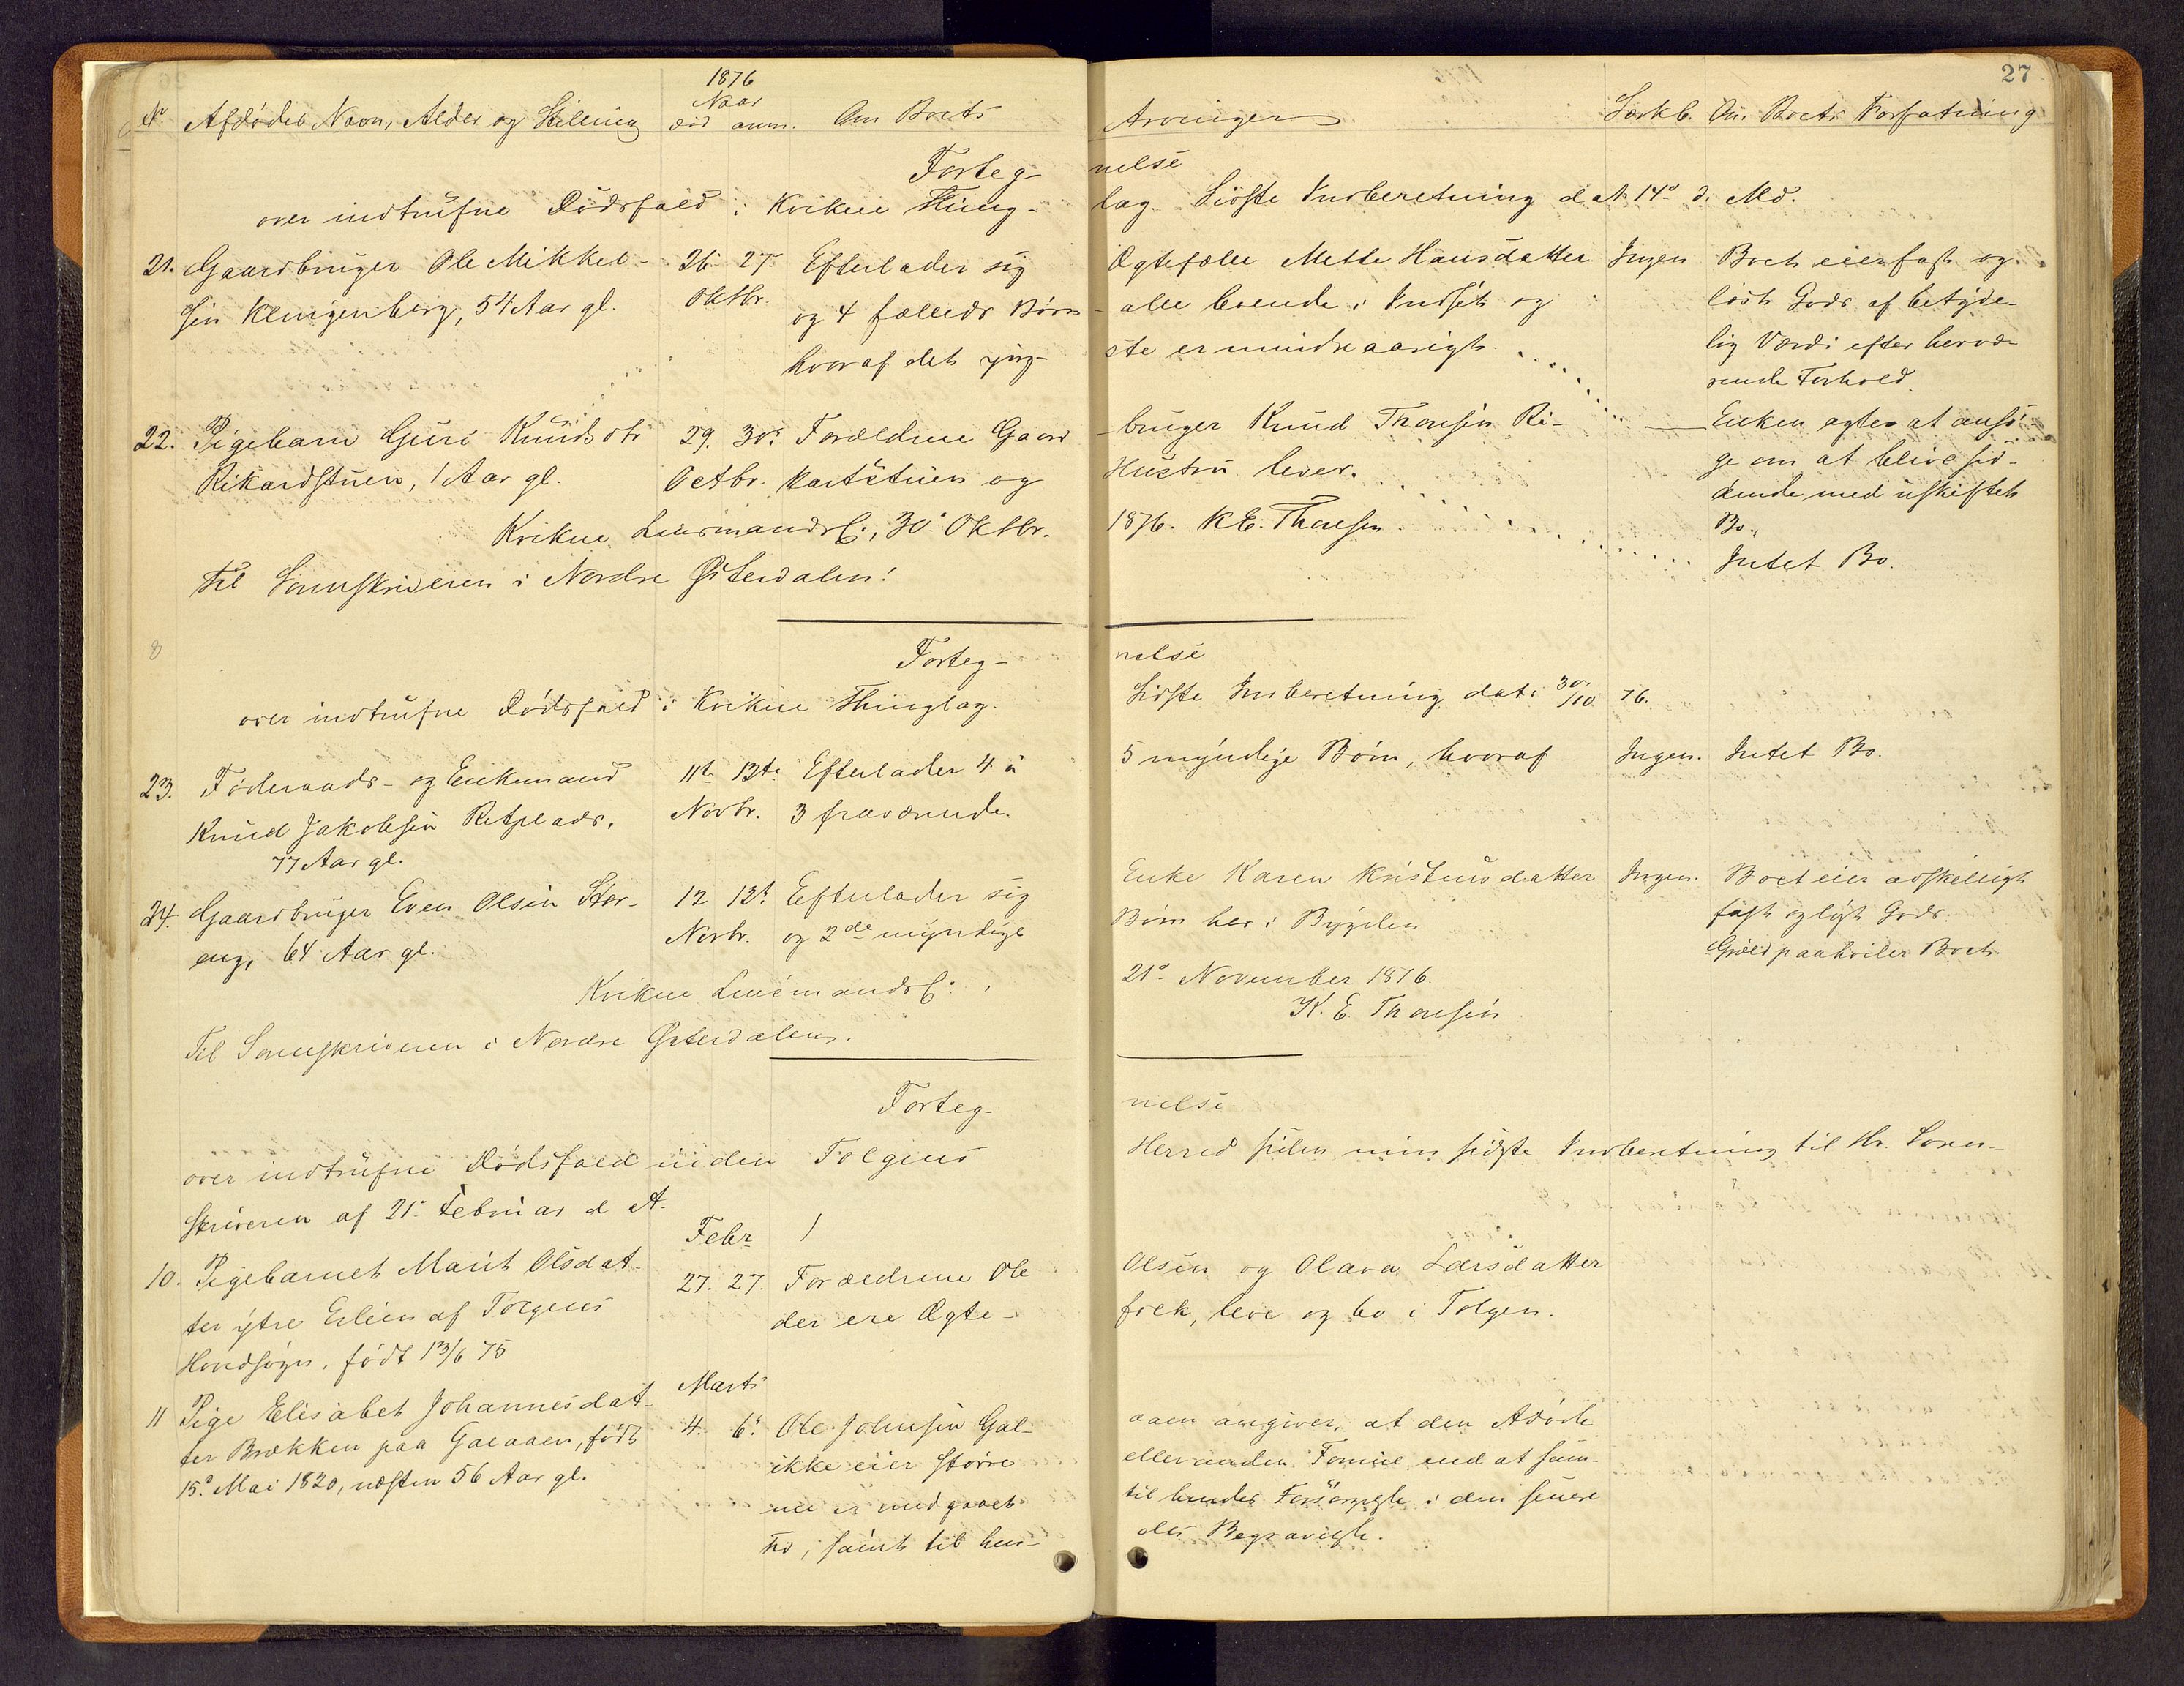 1876
27
No Afdødes Navn, Alder og Stilling
Naar
død anm.
Om Boets
Arvinger
Særkb.
Om Boets Forfatning
Forteg-
nelse
over indtrufne Dødsfald i Kvikne Thing-
lag. Sidste Indberetning dat. 14de d. Md.
21. Gaardbruger Ole Mikkel-
sen Klingenberg, 54 Aar gl.
26. 27.
Oktbr.
Efterlader sig
og 4 fælleds Børn
hvoraf det yng-
Ægtefælle Mette Hansdatter
alle boende i Indset og
ste er mindreaarigt.
Ingen
Boet eier fast og
løst Gods af betyde-
lig Værdi efter hervæ-
rende Forhold.
Enken agter at ansø-
ge om at blive sid-
dende med uskiftet
Bo.
22. Pigebarn Guri Knudsdtr
Rikardstuen, 1 Aar gl.
29. 30.
Octbr.
Forældrene Gaard
kartstuen og
bruger Knud Thoresen Ri-
Hustru lever.
Intet Bo.
Kvikne Lensmandsb:, 30. Oktbr.
1876. K. E. Thoresen.
Til Sorenskriveren i Nordre Østerdalen!
8
Forteg-
nelse
over indtrufne Dødsfald i Kvikne Thinglag.
Sidste Indberetning dat: 30/10. 76.
23. Føderaads- og Enkemand
Knud Jakobsen Retplads,
77 Aar gl.
11te 12te
Novbr.
Efterlader 4 à
3 fraværende.
5 myndige Børn, hvoraf
Ingen.
Intet Bo.
24. Gaardbruger Even Olsen Stor-
eng, 64 Aar gl.
12 12t
Novbr.
Efterlader sig
og 2de myndige
Enke Karen Kristensdatter
Børn her i Bygden
Ingen.
Boet eier adskilligt
fast og løst Gods.
Gjæld paahviler Boet.
Kvikne Lensmandsb:
21de November 1876.
K. E. Thoresen
Til Sorenskriveren i Nordre Østerdalen.
Forteg-
nelse
over indtrufne Dødsfald inden Tolgens
Herred siden min sidste Indberetning til Hr. Soren-
skriveren af 21. Februar d. A.
Febr
10. Pigebarnet Marit Olsdat-
ter ytre Erlien af Tolgens
Hovedsogn, født 13/6 75
27. 27.
Forældrene Ole
der ere Ægte-
Olsen og Olava Larsdatter
folk, leve og bo i Tolgen.
Marts
11 Pige Elisabet Johannesdat-
ter Brækken paa Galaaen, født
15de Mai 1820, næsten 56 Aar gl.
4. 6.
Ole Johnsen Gal-
ikke eier større
ne er medgaaet
Tid, samt til hen-
aaen angiver, at den Afdøde
eller anden Formue end at sam-
til hendes Forsørgelse i den senere
des Begravelse.